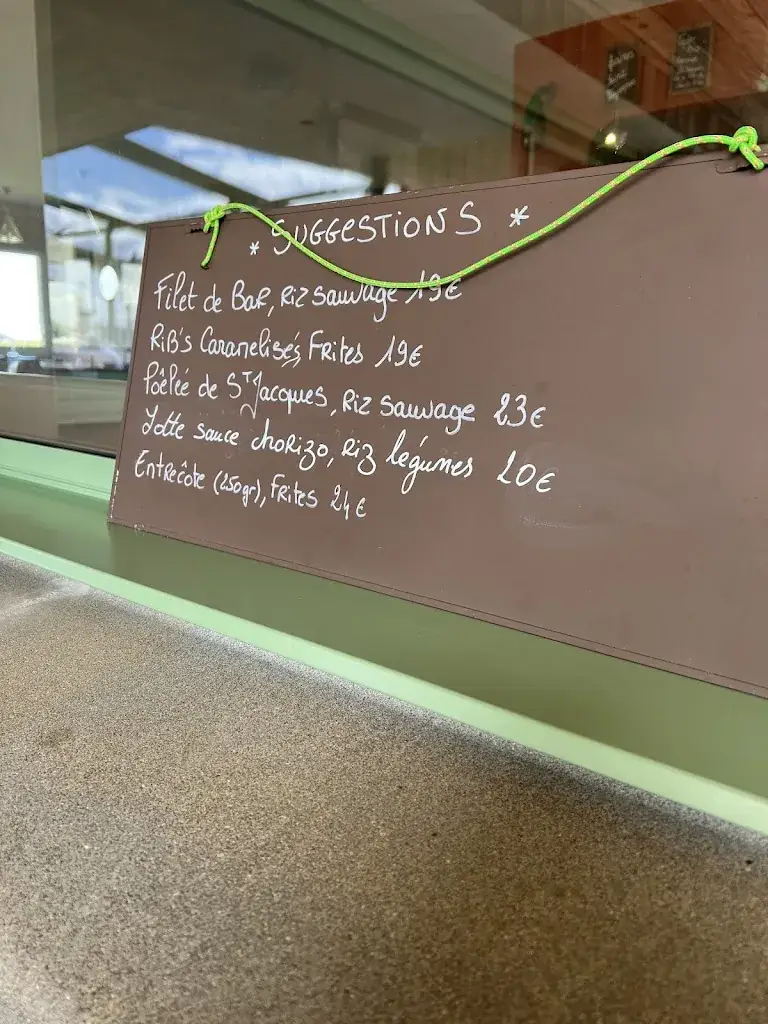 * SUGGESTIONS *
Filet de Bar, Riz Sauvage 19€
RiB's Caramelisés, Frites 19€
Poêlée de St Jacques, Riz Sauvage 23€
Lotte sauce chorizo, Riz légumes 20€
Entrecôte (250gr), Frites 24€